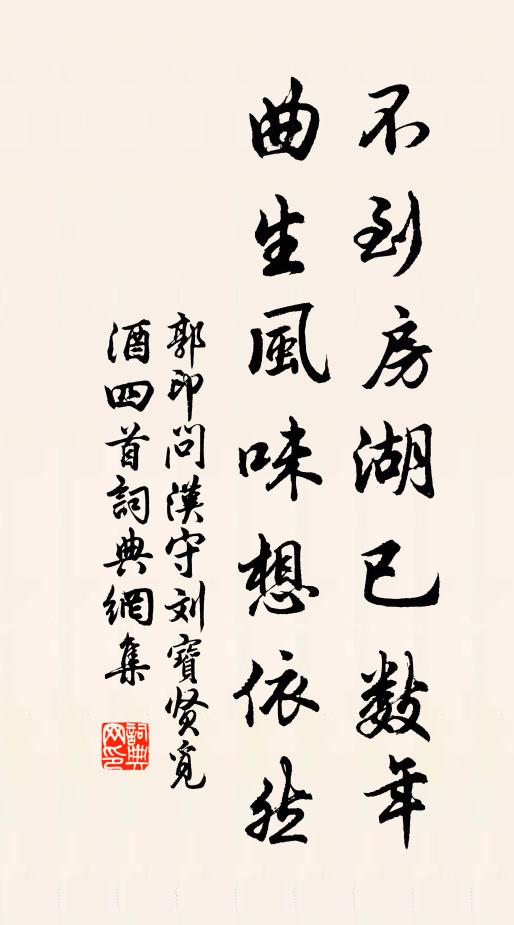 不到房湖已数年
曲生風味想依然
郭印问漢守刘寶贤觅
酒四首詞典網集
詞典网印